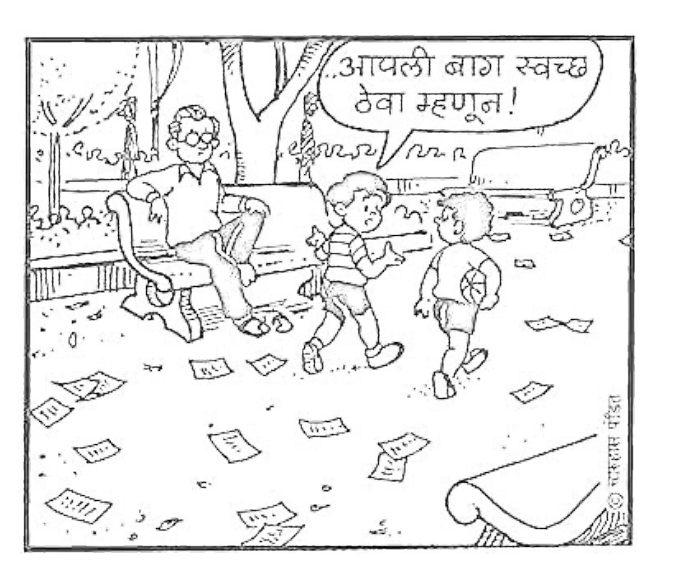 ...आपली बाग स्वच्छ
ठेवा म्हणून!
© चारुहास पंडित